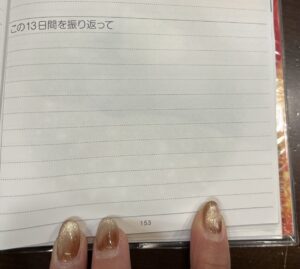 この13日間を振り返って
153